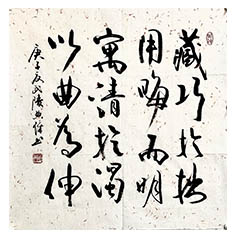 藏巧於拙
用晦而明
寓清於濁
以曲為伸
庚子